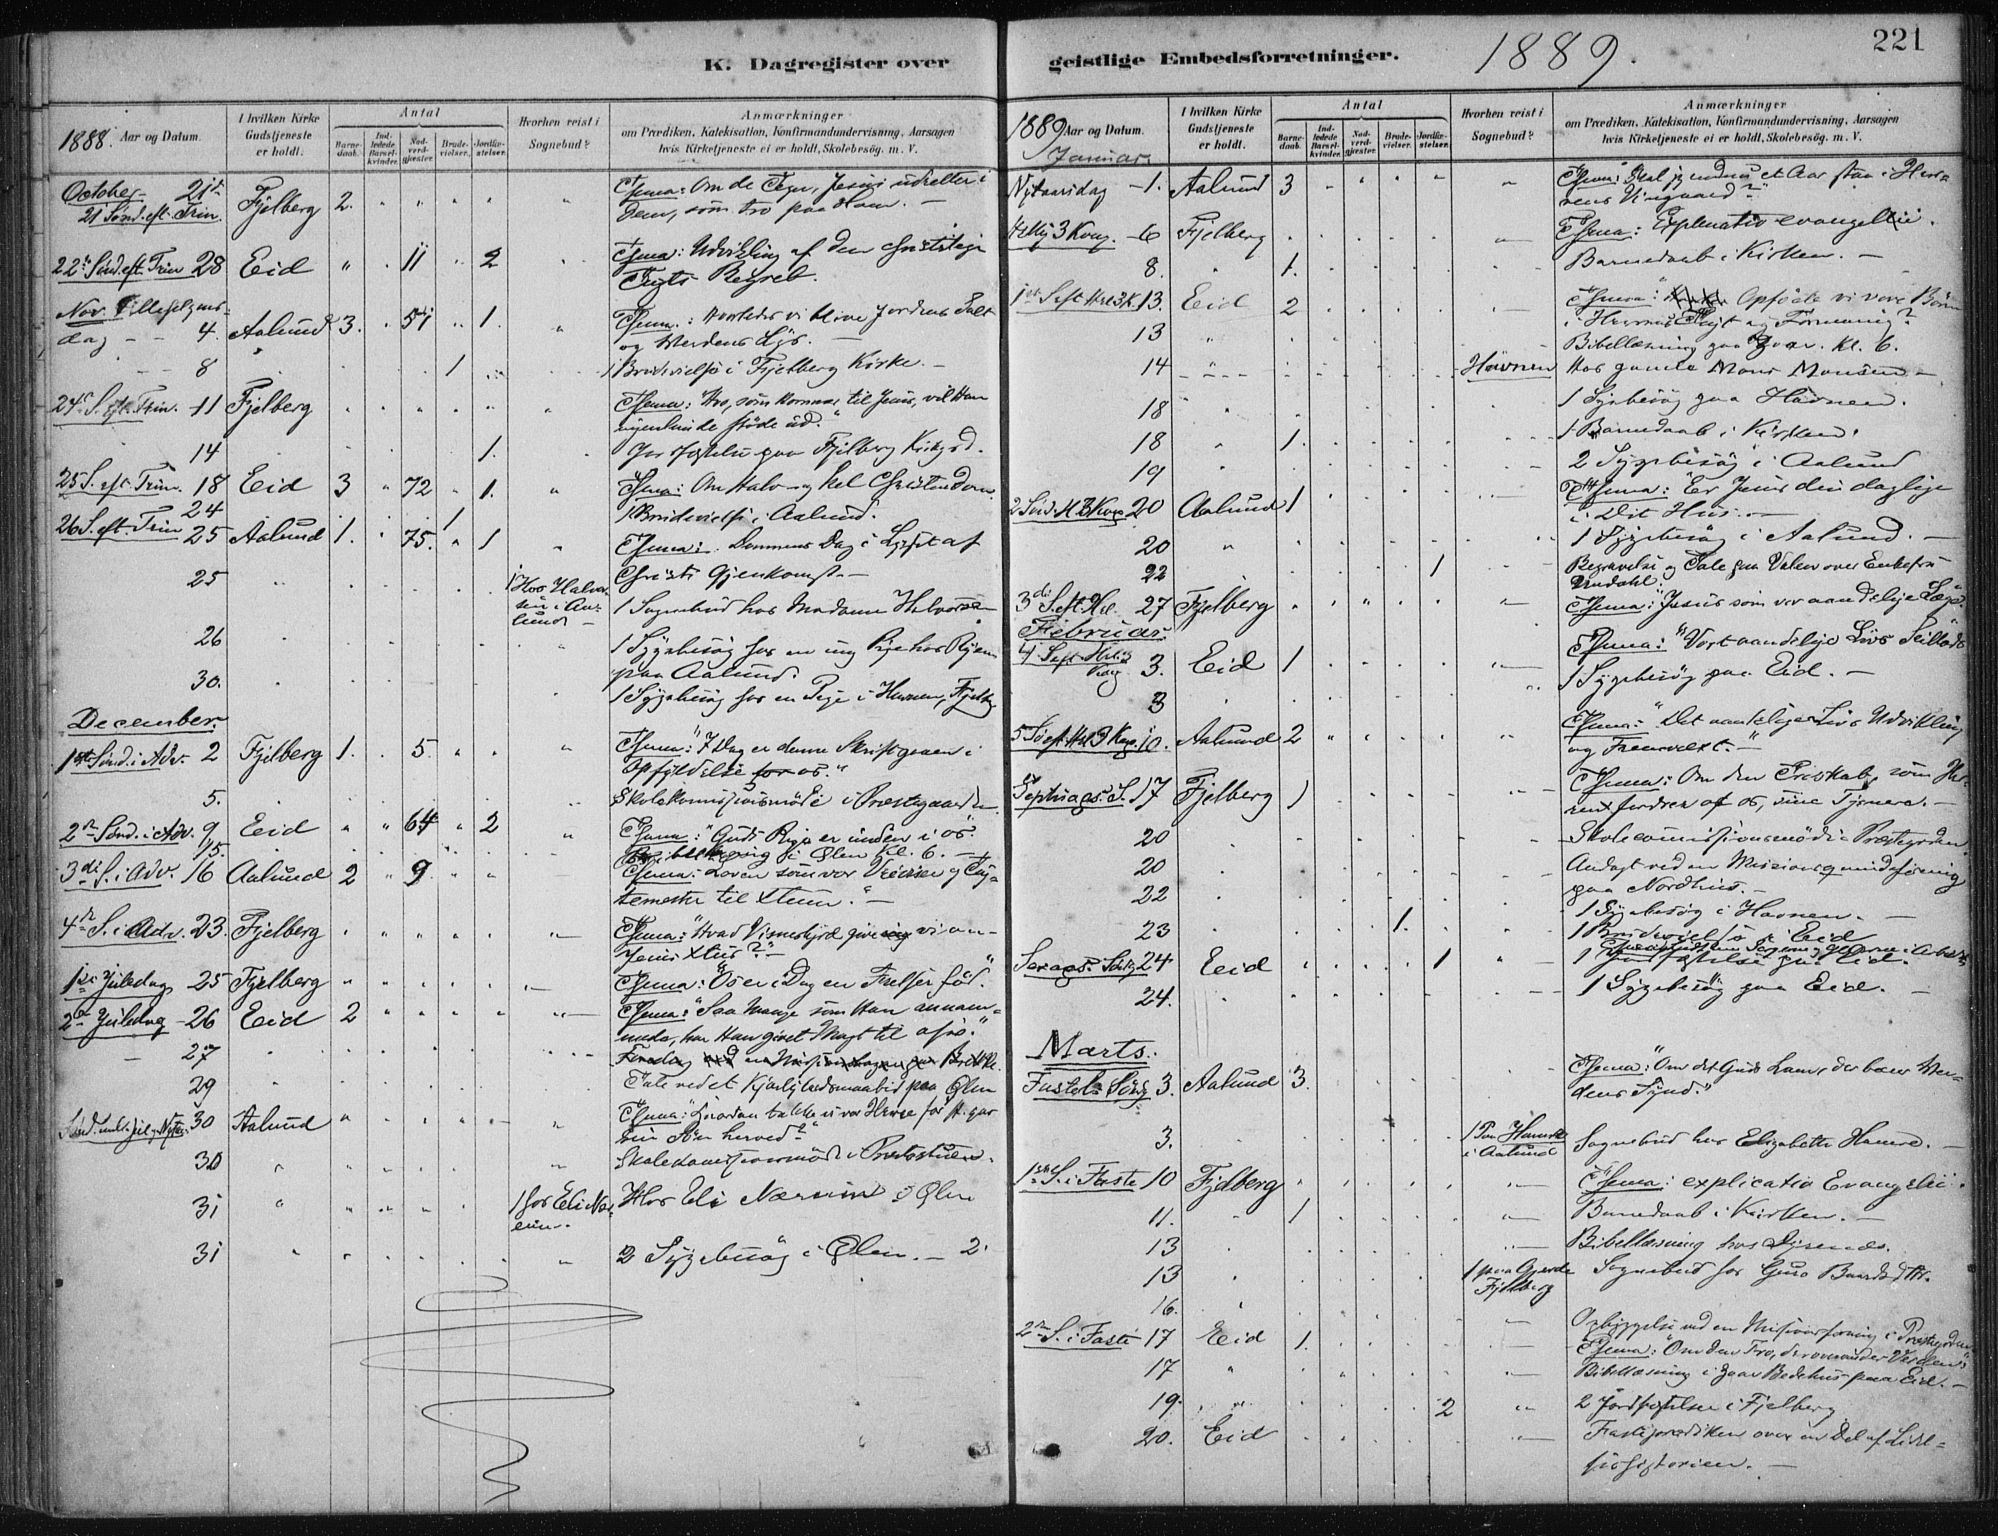 K. Dagregister over
1888. Aar og Datum.
I hvilken Kirke Gudstjeneste er holdt.
Antal
Barnedaab.
Indledede Barselkvinder.
Nadverdgjester.
Brudevielser.
Jordfæstelser.
Hvorhen reist i Sognebud?
Anmærkninger
om Prædiken, Katekisation, Konfirmandundervisning, Aarsagen
hvis Kirketjeneste ei er holdt, Skolebesøg, m. V.
October 21
21 Sönd. eft. Trin. Fjelberg 2. Thema: Om de Tegn, Jesus udretter i
dem, som tro paa Ham. —
22 Sönd. eft. Trin 28 Eid 11 2 Thema: Udvikling af den christelige
Begreb.
Nov. Allehelgens-
dag 4. Aalund 3. 57 1. Thema: Hvorledes vi blive Jordens Salt
og Verdens Lys.
8 1 1 Brudevielse i Fjelberg Kirke. —
24 S. eft. Trin. 11 Fjelberg Thema: Hvo, som kommer til Jesus, vil Han
ingenlunde støde ud."
14 1. Jordfæstelse paa Fjelberg
25 S. eft. Trin. 18 Eid 3 72 1. Thema: Om Halv- og hel Christendom.
24 1 1 Brudevielse i Aalund.
26 S. eft. Trin 25 Aalund 1. 75. 1 Thema: Dommens Dag i Lyset af
Christi Gjenkomst. —
25 1 Hos Halvor-
sen i Aa-
lund — 1 Sognebud hos Madame Halvorsen
26 1 Sygebesög hos en ung Pige hos
paa Aalund.
30. 1 Sygebesög hos en Pige i Havnen, Fjelbg
December.
1ste Sönd. i Adv. 2 Fjelberg 1. 5. Thema: "I Dag er denne Skrift gaaen i
Opfyldelse for os."
5. Skolekommissionsmöde i Præstegaarden
2den Sönd. i Adv. 9 Eid 64 2 Thema: "Guds Rige er inden i os".
15. Bibellæsning i Ølen kl. 6. —
3die S. i Adv. 16 Aalund 2 9 Thema: Loven som vor Veiviser og Tug-
temester til Xtum." —
4de S. i Adv. 23. Fjelberg Thema: "Hvad Vidnesbyrd give vi om
Jesus Xtus?" —
1ste Juledag 25 Fjelberg Thema: "Os er i Dag en Frelser föd."
2den Juledag 26 Eid 2 Thema: "Saa Mange som Han annam-
mede, har Han givet Magt til
27
29 Tale ved et Kjærlighedsmaaltid paa Ølen
Sönd. mell. Jul og Nytaar 30 Aalund Thema: "Hvordan takke vi vor Herre for
30 Skolekommissionsmöde i
31 1 hos Eli Næ- Hos Eli Næs i Ølen
31 2 Sygebesög i Ølen. — 2.
geistlige Embedsforretninger.
1889.
221
1889 Aar og Datum.
Januar
I hvilken Kirke Gudstjeneste er holdt.
Antal
Barnedaab.
Indledede Barselkvinder.
Nadverdgjester.
Brudevielser.
Jordfæstelser.
Hvorhen reist i Sognebud?
Anmærkninger
om Prædiken, Katekisation, Konfirmandundervisning, Aarsagen
hvis Kirketjeneste ei er holdt, Skolebesøg, m. V.
Nytaarsdag — 1. Aalund 3 Thema: Skal jeg endnu et Aar staa i Her-
rens Vingaard?"
Hellig 3 Kong. — 6 Fjelberg Thema: Explanatio evangelii.
8. 1. Barnedaab i Kirken. —
1ste S. eft. Hel 3 K. 13. Eid 2 Thema: Opføde vi vore Börn
i Herrens Tugt og Formaning?
13 Bibellæsning paa kl. 6.
14 Havnen Hos gamle Mons Monsen —
18 1 Sygebesög paa Havnen.
18 1. 1 Barnedaab i Kirken.
19 2 Sygebesög i Aalund
2 Sönd. H 3 Kong 20 Aalund 1 Thema: Er Jesus din daglige
i Dit Hus. —
20 1 Sygebesög i Aalund. —
22 1 Begravelse og Tale paa over Enkefru
Undahl.
3die S. eft. Hel. 27 Fjelberg Thema: "Jesus som vor aandelige Læge.
Februar.
4 S. eft. Hel 3 Kong 3. Eid 1 Thema: "Vort aandelige Livs
3 1 Sygebesög paa Eid. —
5 Sö eft. Hel 3 Kong 10. Aalund 2 Thema: "Det aandelige Livs Udvikling
og Fremvæxt." —
Septuages. S. 17 Fjelberg 1 Thema: Om den Troskab, som Her-
ren fordrer af os, sine Tjenere. —
20 Skolecommissionsmöde i Præstegaarden
20 Andagt ved en Missionsqvindeforening
paa Nordhus. —
22 1 Sygebesög i Havnen. —
23 1. 1 Brudevielse i Eid
Sexages. Sönd 24 Eid 1 1 Jordfæstelse paa Eid.
24. 1 Sygebesög paa Eid. —
Marts.
Fastel. Sönd 3. Aalund 3. Thema: "Om det Guds Lam, der bærer Ver-
dens Synd."
3. 1 Paa
i Aalund Sognebud hos Elizabeth —
1ste S. i Faste 10 Fjelberg Thema: explicatio Evangelii.
11. 1 Barnedaab i Kirken. —
13 Bibellæsning hos
13 1 paa Gjerde
Fjelberg Sognebud hos Guro
16. Opbyggelse ved en Missionsforening i Præstegaarden
2den S. i Faste 17 Eid 1. Thema: "Om den Tro, der overvinder Verden"
17 Bibellæsning i Bedehus paa Eid. —
19. 2 2 Jordfæstelse i Fjelberg
20. Eid Fasteprædiken over en Del af Lidel-
seshistorien. —